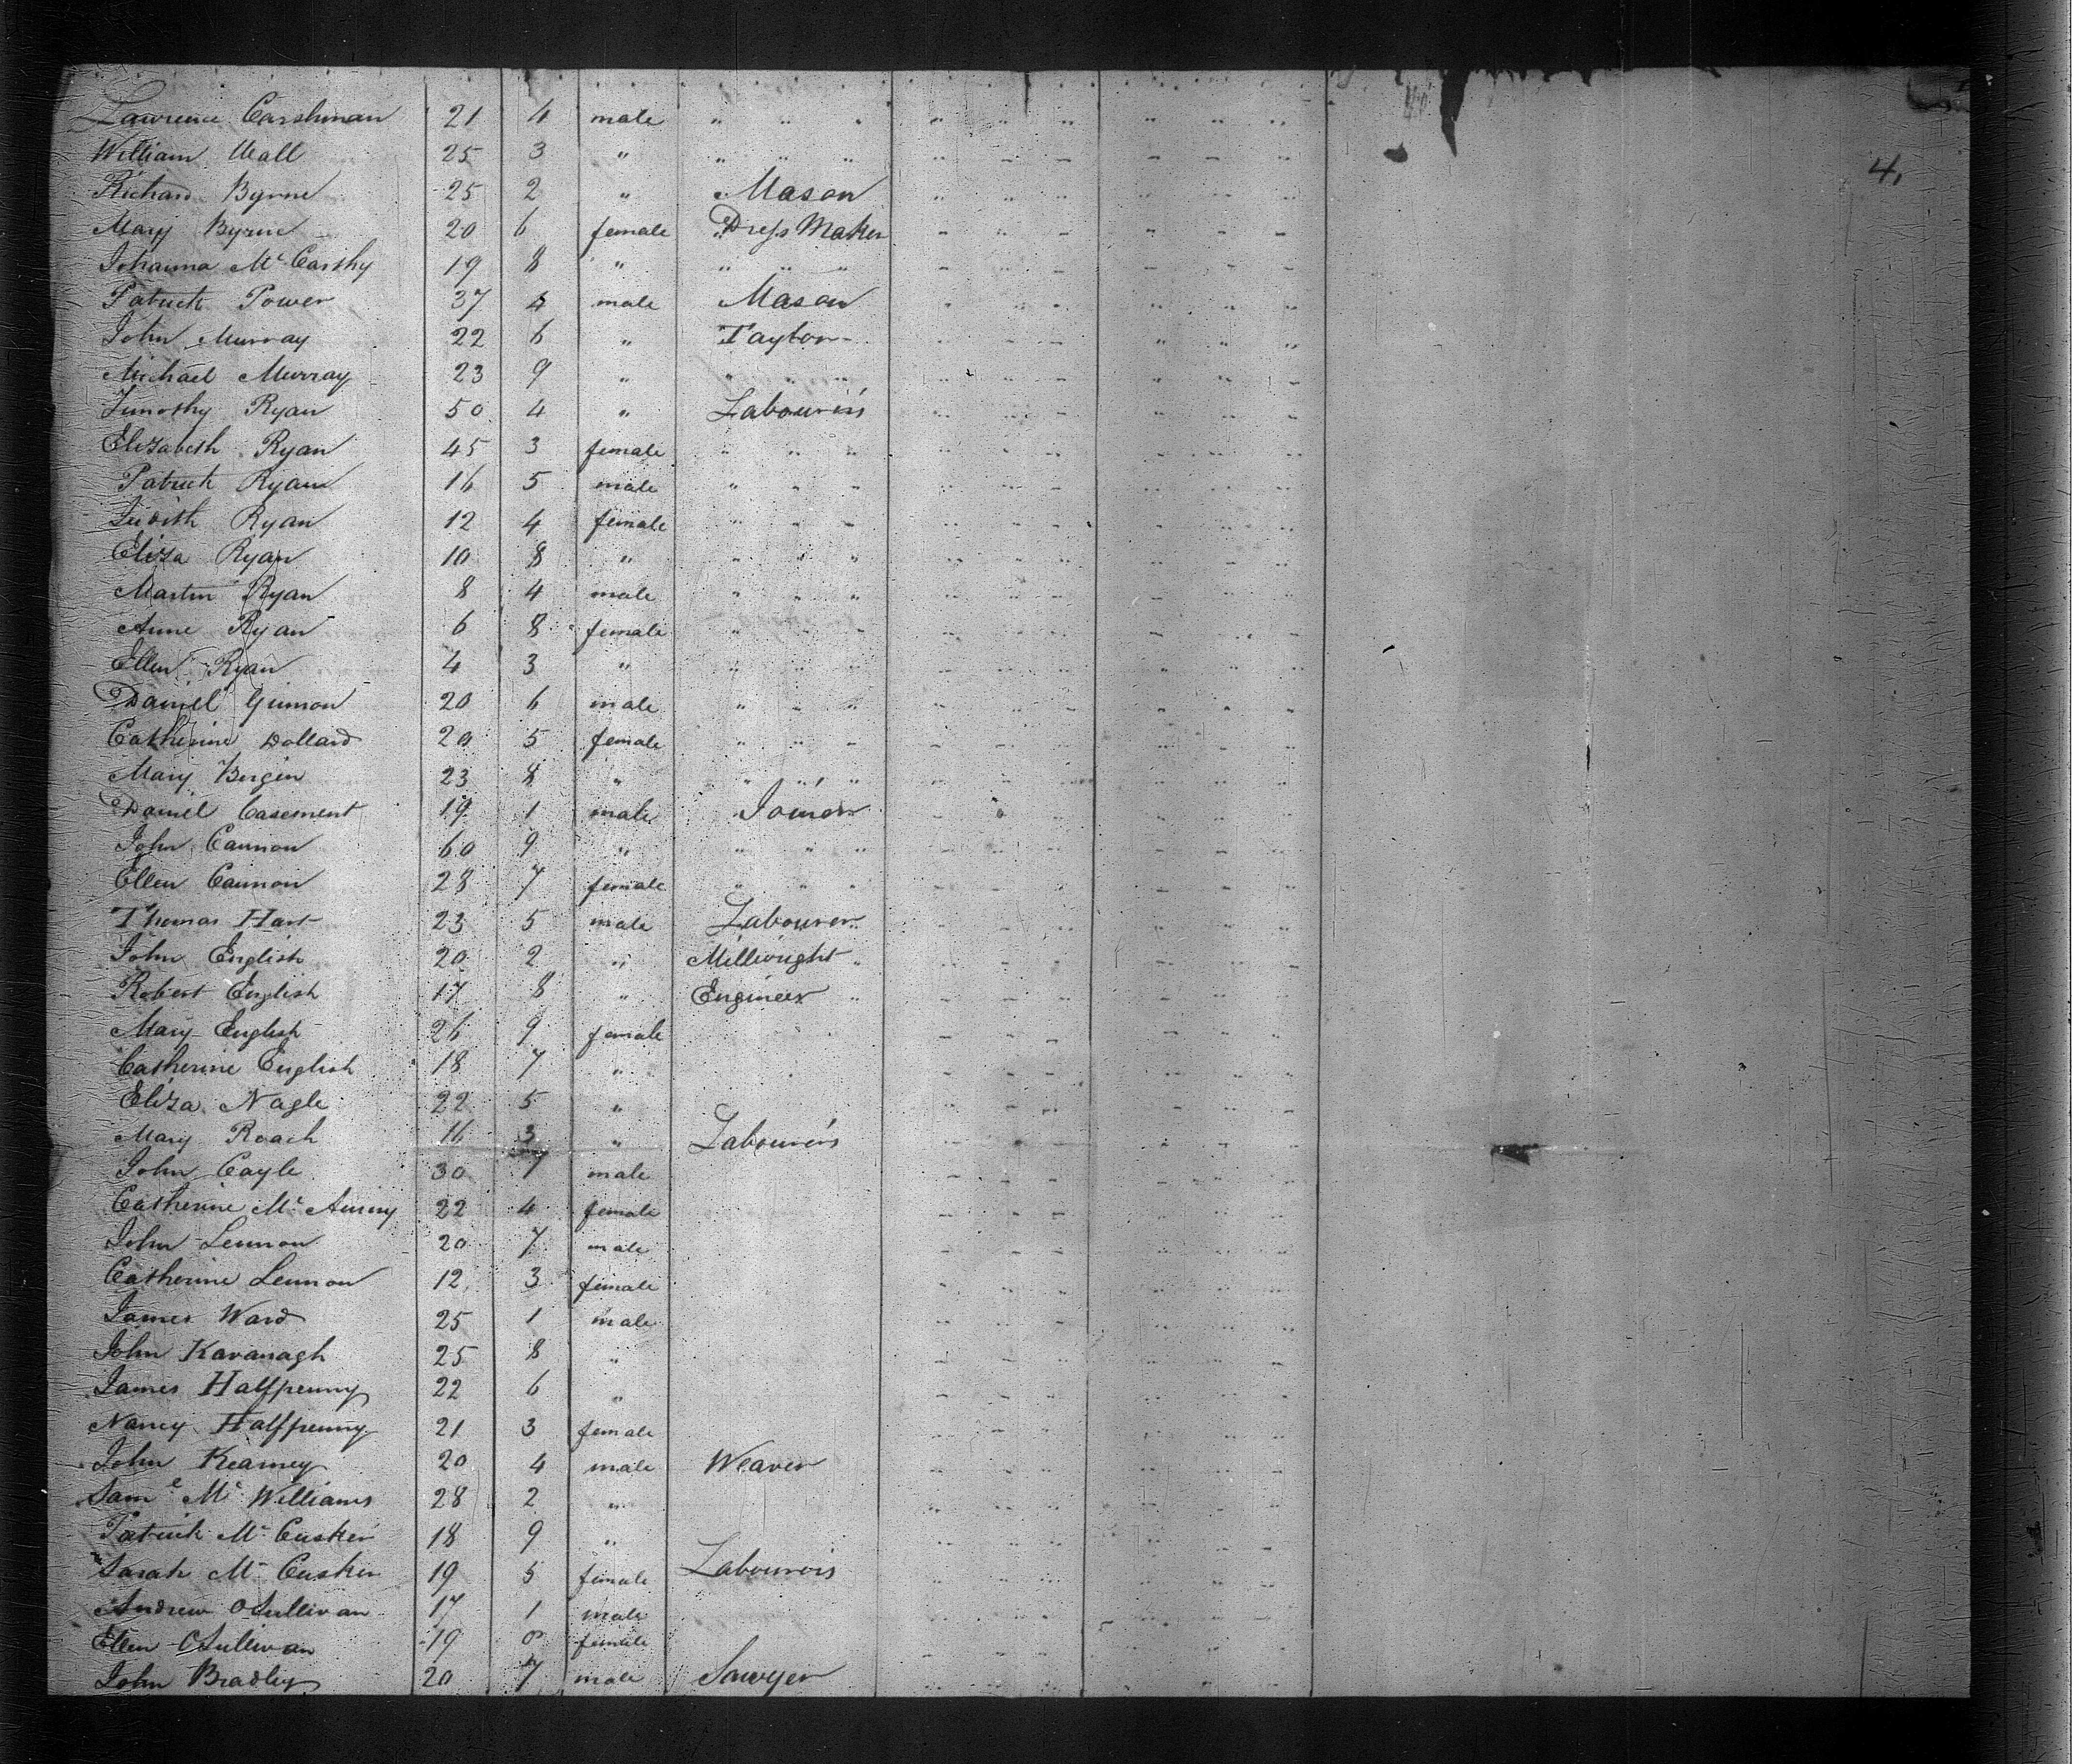 Lawrence Carshman 21 4 male " " " " " " " " "
William Wall 25 3 " " " " " " " " " "
4.
Richard Byrne 25 2 " Mason " " " " " "
Mary Byrne 20 6 female Dress Maker " " " " " "
Johanna Mc Carthy 19 8 " " " " " " " " " "
Patrick Power 37 4 male Mason " " " " " "
John Murray 22 6 " Taylor " " " " " "
Michael Murray 23 9 " " " " " " " " " "
Timothy Ryan 50 4 " Labourers " " " " " "
Elizabeth Ryan 45 3 female " " " " " " " " "
Patrick Ryan 16 5 male " " " " " " " " "
Judith Ryan 12 4 female " " " " " " " " "
Eliza Ryan 10 8 " " " " " " " " " "
Martin Ryan 8 4 male " " " " " " " " "
Anne Ryan 6 8 female " " " " " " " " "
Ellen Ryan 4 3 " " " " " " " " " "
Daniel 20 6 male " " " " " " " " "
Catherine Dollard 20 5 female " " " " " " " " "
Mary Bergin 23 8 " " " " " " " " " "
Daniel Casement 19 1 male Joiner " " " " " "
John Cannon 60 9 " " " " " " " " " "
Ellen Cannon 28 7 female " " " " " " " " "
Thomas Hart 23 5 male Labourer " " " " " "
John English 20 2 " Millwright " " " " " " "
Robert English 17 8 " Engineer " " " " " " "
Mary English 26 9 female " " " " " "
Catherine English 18 7 " " " " " " "
Eliza Nagle 22 5 " " " " " " "
Mary Roach 16 3 " Labourers " " " " " "
John Cayle 30 7 male " " " " " "
Catherine Mc 22 4 female " " " " " "
John Lennon 20 7 male " " " " " "
Catherine Lennon 12 3 female " " " " " "
James Ward 25 1 male " " " " " "
John Kavanagh 25 8 " " " " " " "
James Halfpenny 22 6 " " " " " " "
Nancy Halfpenny 21 3 female " " " " " "
John Kearney 20 4 male Weaver " " " " " "
Saml Mc Williams 28 2 " " " " " " "
Patrick Mc Cusker 18 9 " " " " " " "
Sarah Mc Cusker 19 5 female Labourers " " " " " "
Andrew OSullivan 17 1 male " " " " " "
Ellen OSullivan 19 female " " " " " "
John Bradley 20 7 male Sawyer " " " " " "